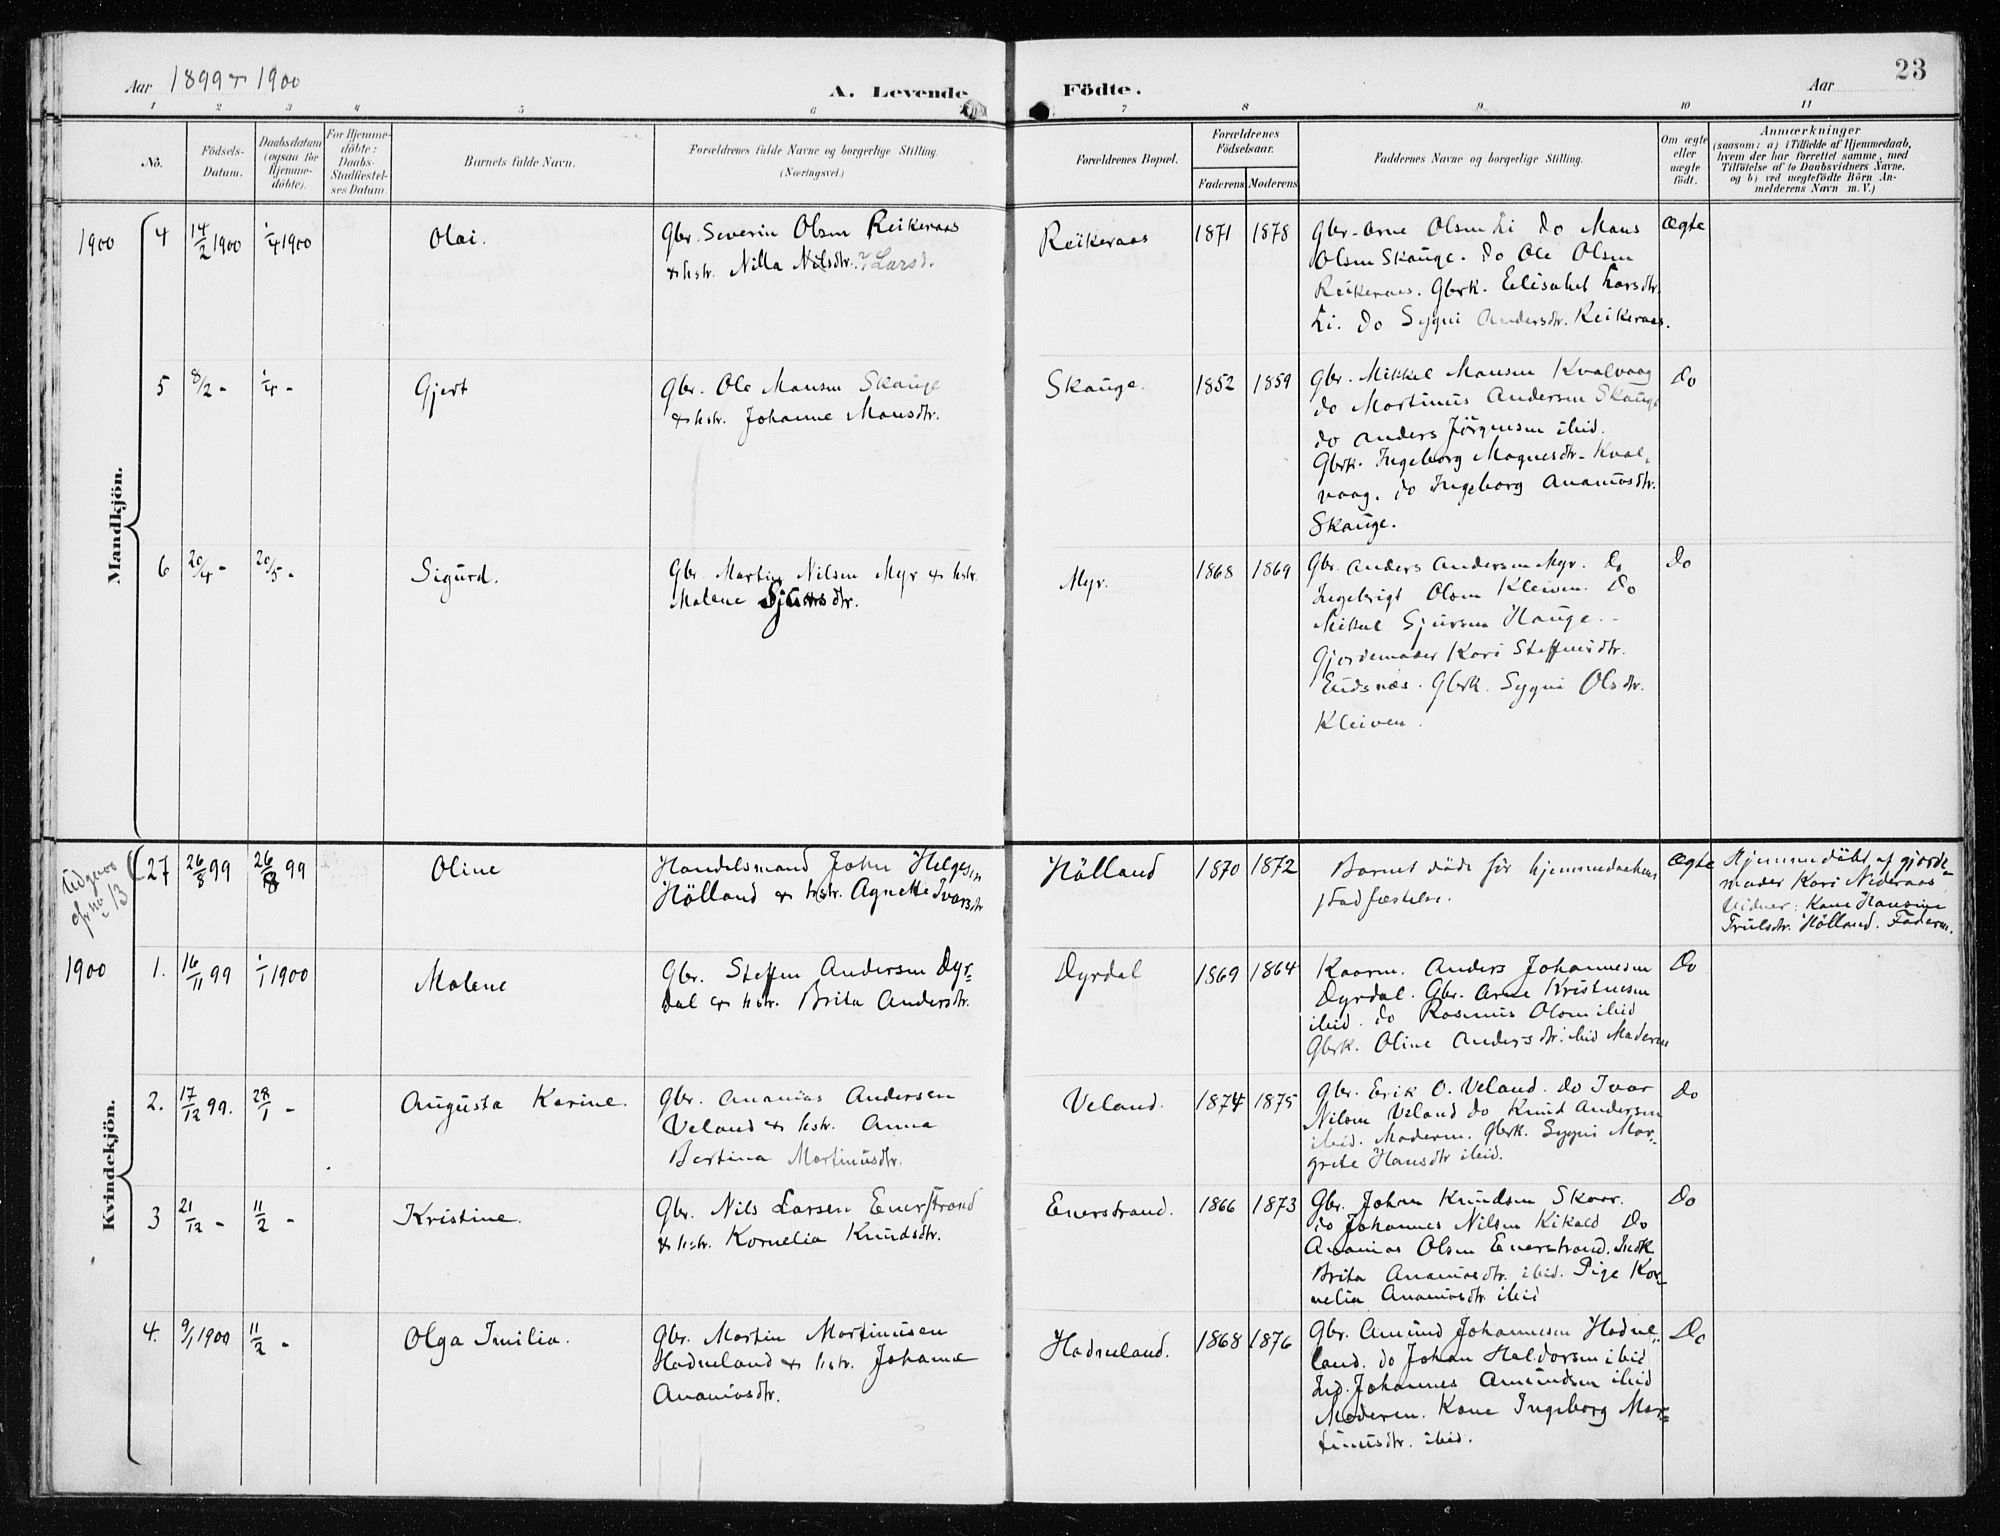 Aar 1899 & 1900
A. Levende Födte.
Aar
23
1 2 3 4 5 6 7 8 9 10 11
No.
Födsels-
Datum.
Daabsdatum
(ogsaa för
Hjemme-
döbte).
For Hjemme-
döbte:
Daabs-
Stadfæstel-
ses Datum.
Barnets fulde Navn.
Forældrenes fulde Navne og borgerlige Stilling.
(Næringsvei.)
Forældrenes Bopæl.
Forældrenes
Födselsaar.
Faderens Moderens
Faddernes Navne og borgerlige Stilling.
Om ægte
eller
uægte
födt.
Anmærkninger
(saasom: a) i Tilfælde af Hjemmedaab,
hvem der har forrettet samme, med
Tilföielse af to Daabsvidners Navne,
og b) ved uægtefödte Börn An-
melderens Navn m. V.)
Mandkjön.
1900 4 14/2 1900 1/4 1900 Olai.
Gbr. Severin Olsen Reikeraas
& hstr. Nilla Nilsdtr. ? Larsd.
Reikeraas 1871 1878
Gbr. Arne Olsen Li do Mons
Olsen Skauge. do Ole Olsen
Reikeraas. Gbrk. Elisabet Larsdtr.
Li. do Sygni Andersdtr. Reikeraas.
Ægte
5 8/2 - 1/4 - Gjert
Gbr. Ole Monsen Skauge
& hstr. Johanne Monsdtr.
Skauge. 1852 1859
Gbr. Mikkel Monsen Kvalvaag
do Martinus Andersen Skauge
do Anders Jörgensen ibid.
Gbrk. Ingeborg Magnesdtr. Kval-
vaag. do Ingeborg Ananiasdtr.
Skauge.
Do
6 20/4 - 20/5 - Sigurd.
Gbr. Martin Nilsen Myr & hstr.
Malene Sjursdtr.
Myr. 1868 1869
Gbr. Anders Andersen Myr. Do
Ingebrigt Olsen Kleiven. Do
Mikal Sjursen Hauge.
Gjordemoder Kari Steffensdtr.
Eidsnæs. Gbrk. Sygni Olsdtr.
Kleiven.
Do
Kvindekjön.
Udgaar
cfr. No
13
27 26/8 99 26/8 99 Oline
Handelsmand John Helgesen
Hölland & hstr. Agnethe Ivarsdtr
Hölland 1870 1872
Barnet döde för hjemmedaabens
stadfæstelse.
Ægte
Hjemmedöbt af gjorde-
moder Kari Nederaas
Vidner: Kone Hansine
Trulsdtr. Hölland. Faderen.
1900 1. 16/11 99 1/1 1900 Malene
Gbr. Steffen Andersen Dyr-
dal & hstr. Brita Andersdtr.
Dyrdal 1869 1864
Kaarm. Anders Johannesen
Dyrdal. Gbr. Arne Kristensen
ibid. do Rasmus Olsen ibid
Gbrk. Oline Andersdtr. ibid Moderen
Do
2. 17/12 99. 28/1 - Augusta Karine.
Gbr. Ananias Andersen
Veland & hstr. Anna
Bertina Martinusdtr.
Veland. 1874 1875
Gbr. Erik O. Veland. Do Ivar
Nilsen Veland do Knud Andersen
ibid. Moderen. Gbrk. Sygni Mar-
grete Hansdtr ibid.
Do
3 21/12 - 11/2 - Kristine.
Gbr. Nils Larsen Enerstrand
& hstr. Kornelia Knudsdtr.
Enerstrand. 1866 1873
Gbr. Johan Knudsen Skaar.
do Johannes Nilsen Kikald Do
Ananias Olsen Enerstrand. Indk
Brita Ananiasdtr. ibid. Pige Kor-
nelia Ananiasdtr ibid
Do
4. 9/1 1900 11/2 - Olga Imilia.
Gbr. Martin Martinusen
Hodneland & hstr. Johanne
Ananiasdtr.
Hodneland. 1868 1876
Gbr. Amund Johannesen Hodne-
land. do Johan Haldorsen ibid
Ind. Johannes Amundsen ibid
Moderen. Kone Ingeborg Mar-
tinusdtr. ibid.
Do